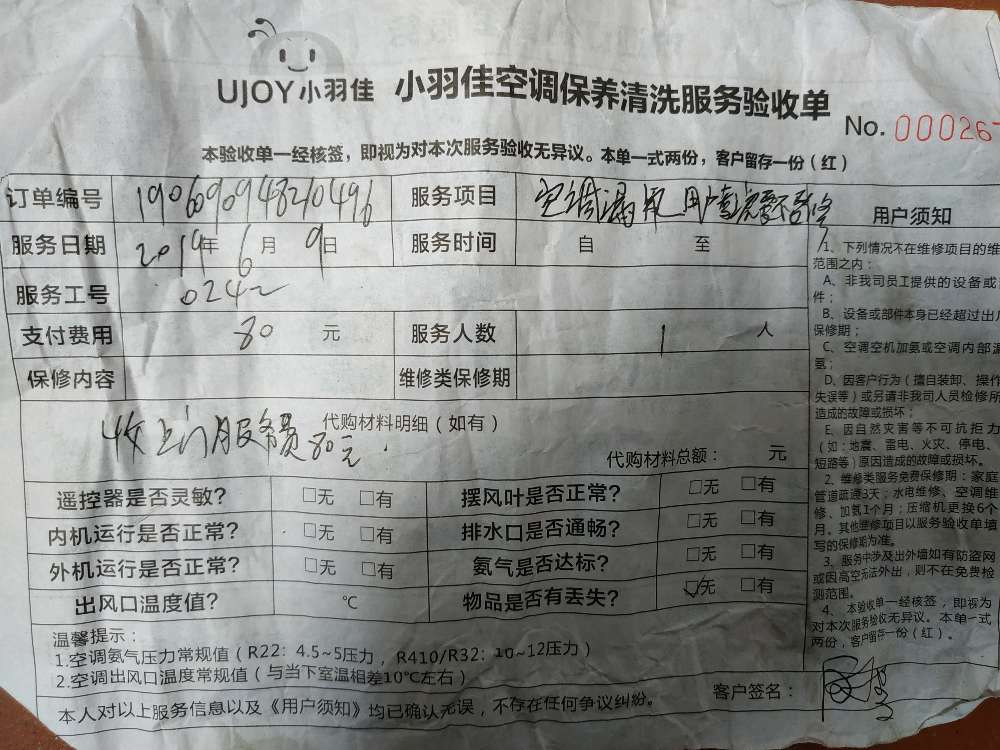 UJOY小羽佳 小羽佳空调保养清洗服务验收单
No. 000267
本验收单一经核签，即视为对本次服务验收无异议。本单一式两份，客户留存一份（红）
订单编号 服务项目 空调漏
服务日期 2019年6月9日 服务时间 自 至
服务工号 0242
支付费用 80 元 服务人数 1 人
保修内容 维修类保修期
代购材料明细（如有）
收上门服务费80元.
代购材料总额： 元
遥控器是否灵敏? □无 □有 摆风叶是否正常? □无 □有
内机运行是否正常? □无 □有 排水口是否通畅? □无 □有
外机运行是否正常? □无 □有 氨气是否达标? □无 □有
出风口温度值? ℃ 物品是否有丢失? ☑无 □有
温馨提示：
1.空调氨气压力常规值（R22：4.5~5压力，R410/R32：10~12压力）
2.空调出风口温度常规值（与当下室温相差10℃左右）
本人对以上服务信息以及《用户须知》均已确认无误，不存在任何争议纠纷。
客户签名：
用户须知
1、下列情况不在维修项目的维
范围之内：
A、非我司员工提供的设备或
件；
B、设备或部件本身已经超过出厂
保修期；
C、空调空机加氨或空调内部漏
氨；
D、因客户行为（擅自装卸、操作
失误等）或另请非我司人员检修所
造成的故障或损坏；
E、因自然灾害等不可抗拒力
（如：地震、雷电、火灾、停电、
短路等）原因造成的故障或损坏。
2、维修类服务免费保修期：家庭
管道疏通3天；水电维修、空调维
修、加氨1个月；压缩机更换6个
月。其他维修项目以服务验收单填
写的保修期为准。
3、服务中涉及出外墙如有防盗网
或因高空无法外出，则不在免费检
测范围。
4、本验收单一经核签，即视为
对本次服务验收无异议。本单一式
两份，客户留存一份（红）。